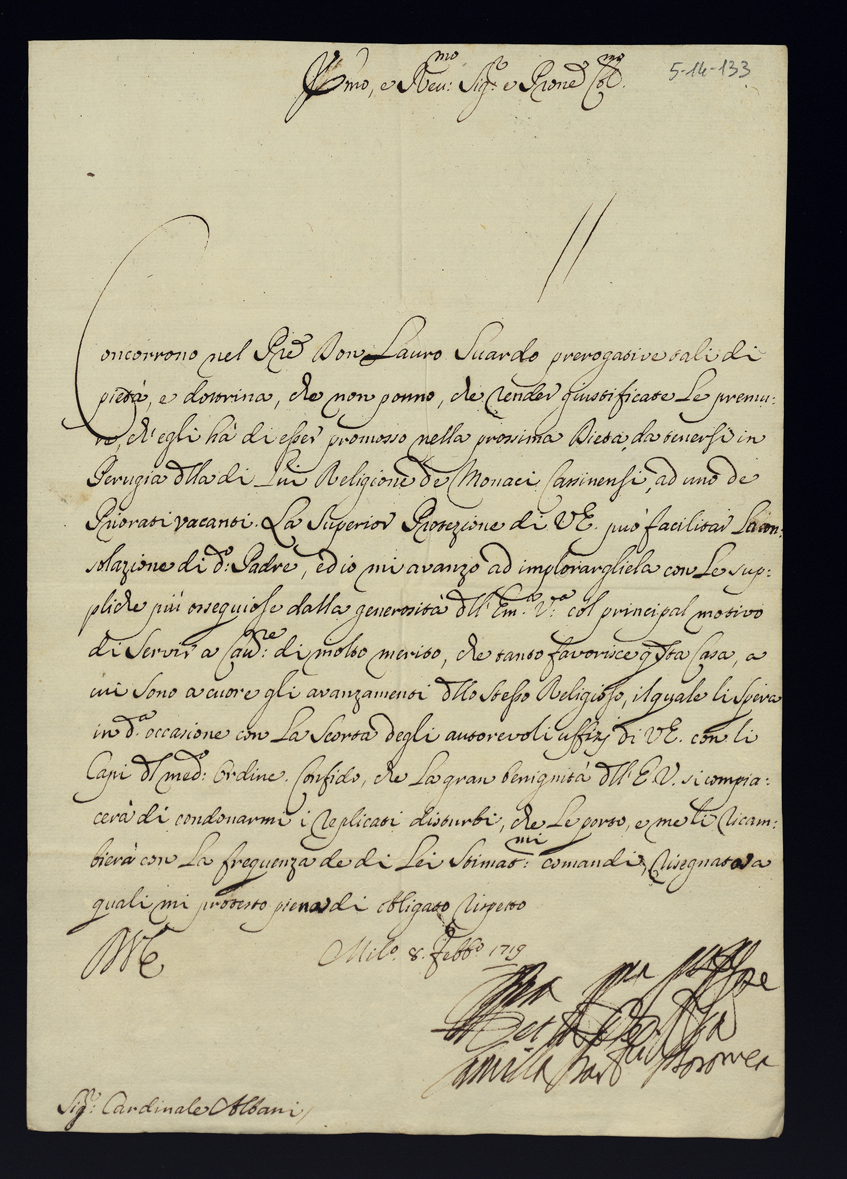 Emo, e Reu:mo Sig.r e Prone Col.mo
5-14-133
Concorrono nel Pre Don Lauro Suardo prerogative tali di
pietà, e dottrina, che non ponno, che render giustificate Le premu:
re, ch'egli hà di esser promosso nella prossima Dieta, da tenersi in
Perugia dlla di Lui Religione de Monaci Cassinensi, ad uno de
Priorati vacanti. La Superior Protezione di V.E. può facilitar La con:
solazione di do: Padre, ed io mi avanzo ad implorargliela con Le sup:
pliche più ossequiose dalla generosità dll'Em.a V.a col principal motivo
di Servir a Cau.re: di molto merito, che tanto favorisce q.sta Casa, a
cui sono a cuore gli avanzamenti dllo stesso Religioso, il quale li spera
in d.a occasione con La Scorta degli autorevoli uffizj di V.E. con li
Capi dl med.o: Ordine. Confido, che La gran benignità dll'E.V. si compia:
cerà di condonarmi i replicati disturbi, che Le porto, e me li ricam:
bierà con La frequenza de di Lei Stimat:mi comandi, risegnata a
quali mi protesto piena di obligato rispetto
D V E
Mil.o 8. Febb.o 1719
Camilla Bar Boromea
Sig.r Cardinale Albani